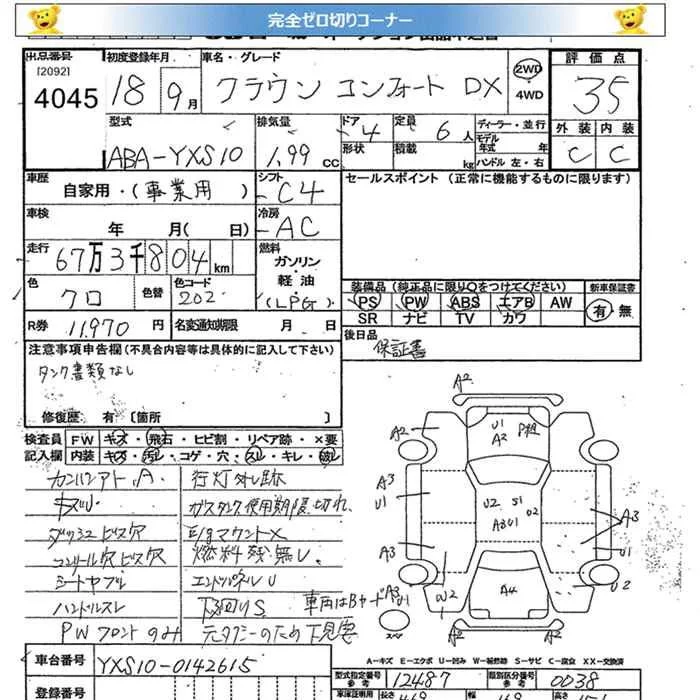 完全ゼロ切りコーナー
出品番号 初度登録年月 車名・グレード 評価点
[2092]
4045 18 9月 クラウン コンフォート DX 2WD 4WD 35
型式 排気量 ドア 4 定員 6人 ディーラー・並行 外装 内装
ABA-YXS10 1.99 CC 形状 積載 kg モデル年式 年 ハンドル 左・右 C C
車歴 自家用・(事業用) シフト C4 セールスポイント (正常に機能するものに限ります)
車検 年 月( 日) 冷房 AC
走行 67万3千804km 燃料 ガソリン・軽油・(LPG)
色 クロ 色替 色コード 202
装備品(純正品に限り○をつけてください) 新車保証書
PS PW ABS エアB AW 有・無
SR ナビ TV カワ
R券 11,970円 名変通知期限 月 日 後日品
保証書
注意事項申告欄 (不具合内容等は具体的に記入して下さい)
タンク書類なし
修復歴 有 [箇所 ]
検査員 FW キズ・飛石・ヒビ割・リペア跡・×要
記入欄 内装 キズ・汚れ・コゲ・穴・スレ・キレ・破レ
カンバンアト、A 行灯外し跡
ガスタンク使用期限切れ
ダッシュビス穴 E/gマウント×
コンソール穴ビス穴 燃料残無し
シートヤブレ エンドパネルU
ハンドルスレ 下回りS 車両はBヤード
PWフロントのみ 元タクシーのため下見要
A2
A2 U1 A2 P粗
A3 U1 U2 S1 A3
A3 U1
A3 U1 W2 A4 U2
スペア A2 A2
A-キズ E-エクボ U-凹み W-補修跡 S-サビ C-腐食 XX-交換済
車台番号 YXS10-0142615
型式指定番号 参考 12487 類別区分番号 参考 0038
登録番号 車庫証明用 長さ 469 幅 高さ